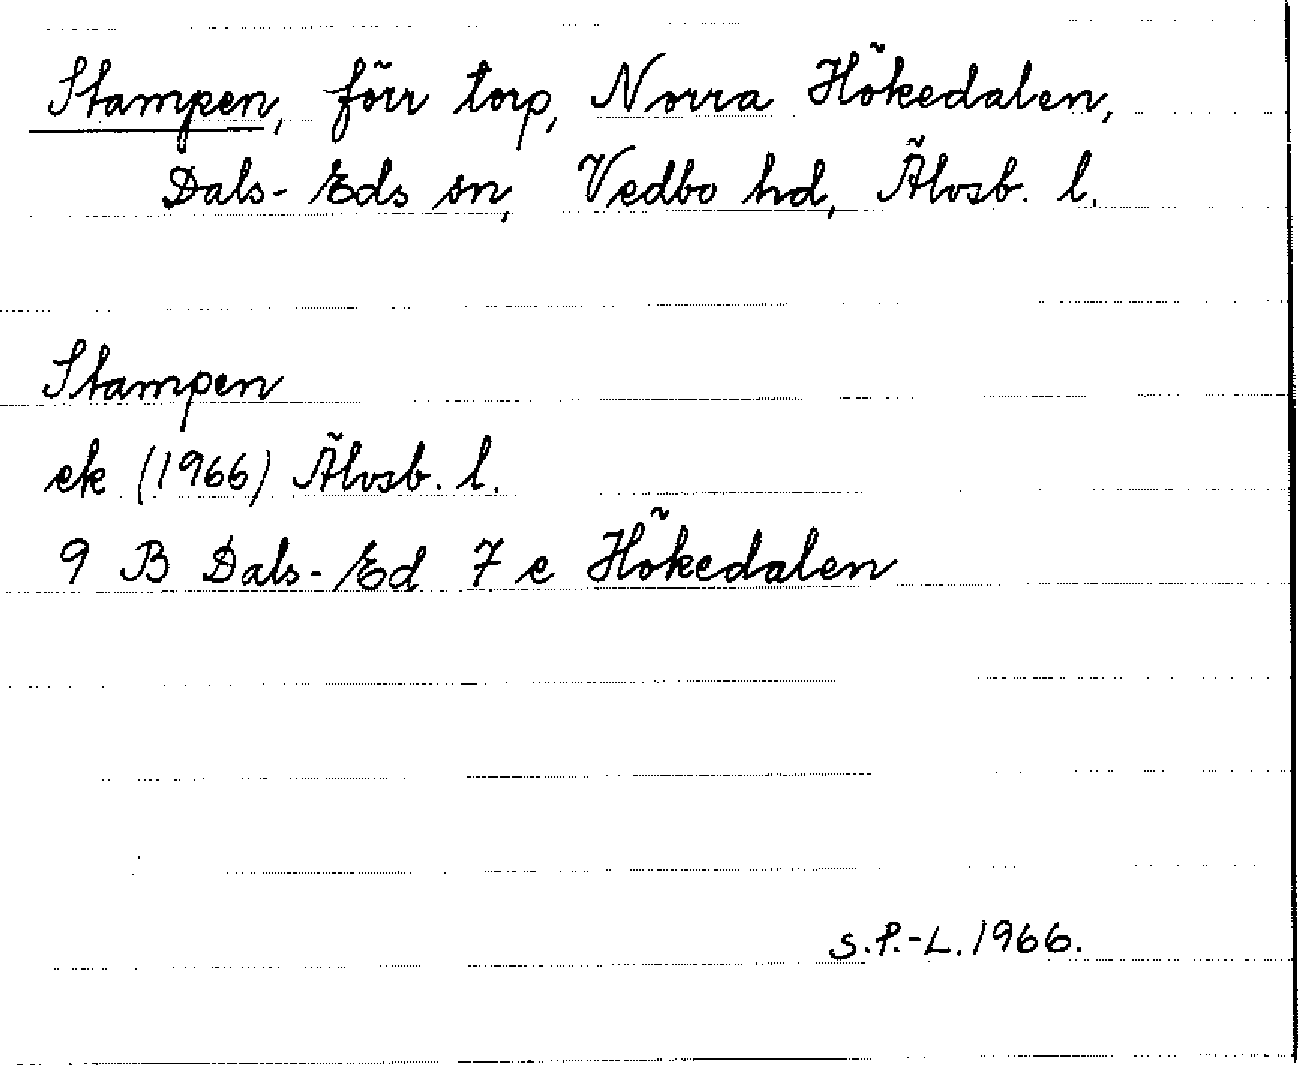 Stampen, förr torp, Norra Hökedalen,
Dals-Eds sn, Vedbo hd, Älvsb. l.
Stampen
ek (1966) Älvsb. l.
9 B Dals-Ed 7 e Hökedalen
S.P.-L. 1966.